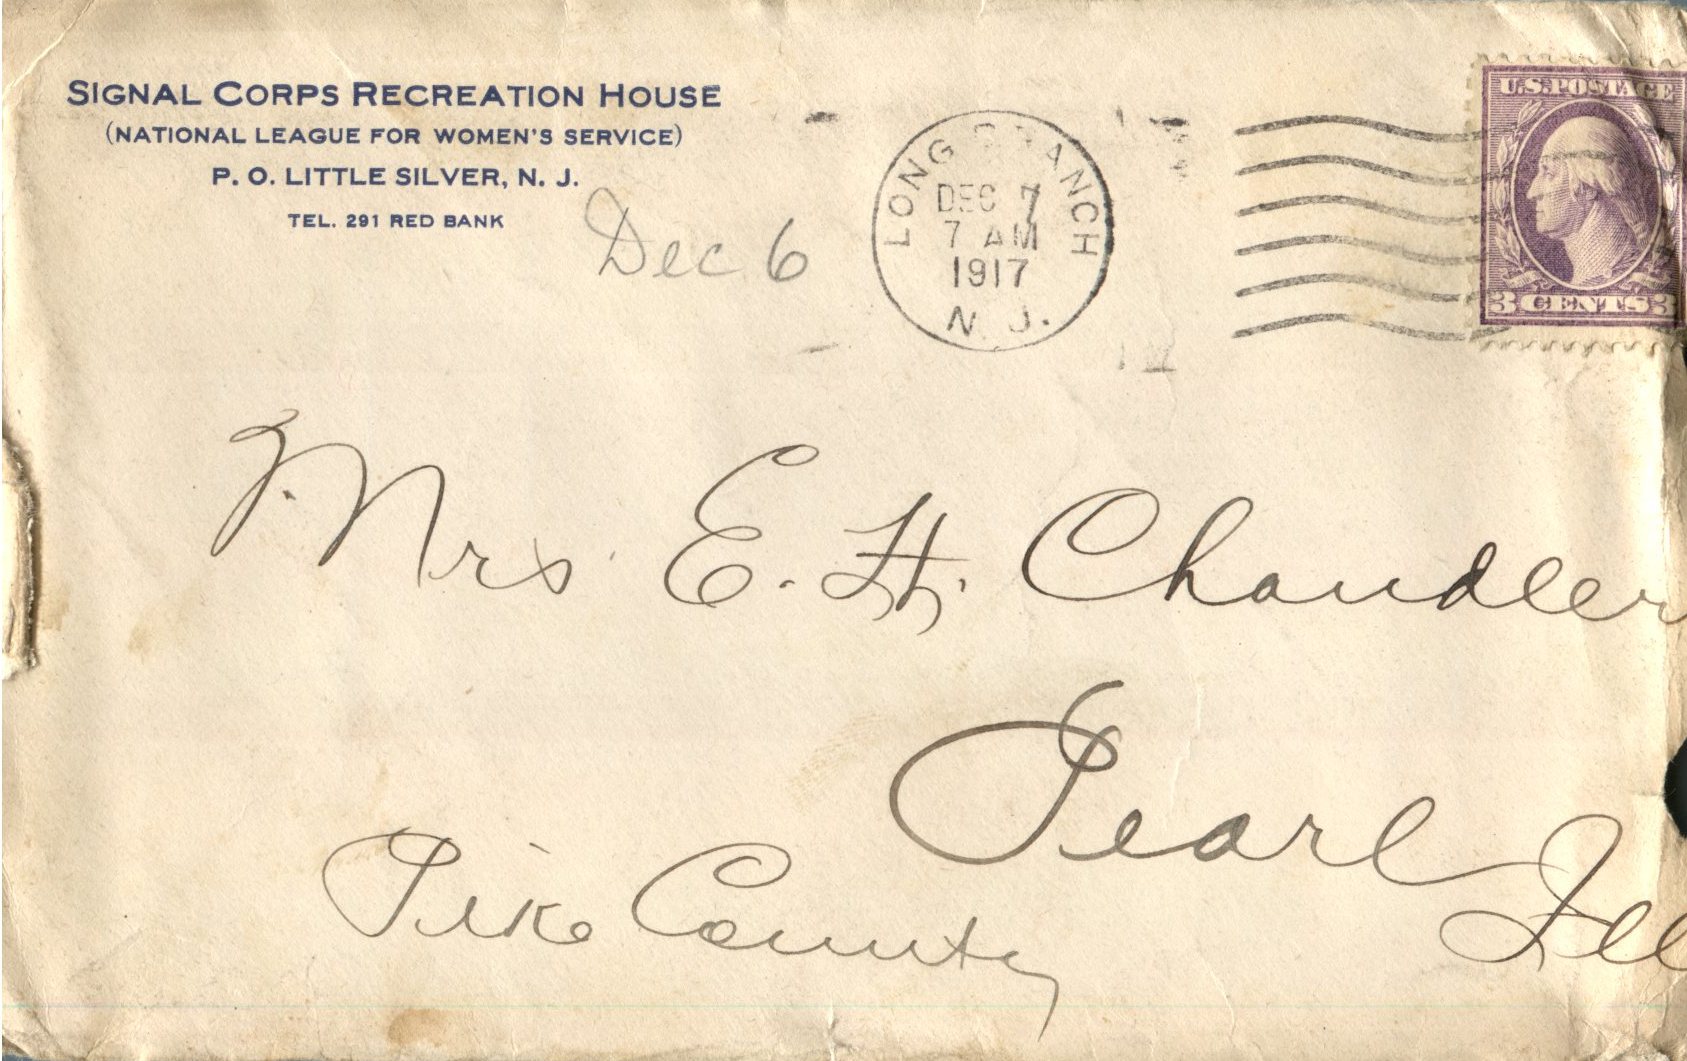 SIGNAL CORPS RECREATION HOUSE
(NATIONAL LEAGUE FOR WOMEN'S SERVICE)
P. O. LITTLE SILVER, N. J.
TEL. 291 RED BANK
Dec 6
LONG BRANCH
DEC 7
7 AM
1917
N. J.
U.S. POSTAGE
3 CENTS 3
Mrs E. H. Chandler
Pearl
Pike County Ill